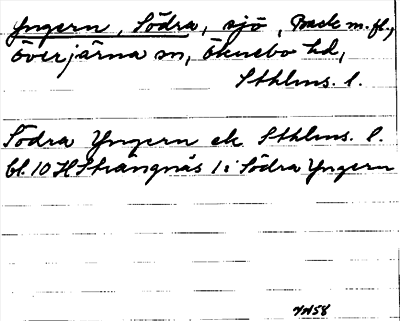 Yngern, Södra, sjö, Back m.fl.,
Överjärna sn, Öknebo hd,
Sthlms. l.
Södra Yngern ek Sthlms. l.
bl. 10 H Strängnäs 1: Södra Yngern